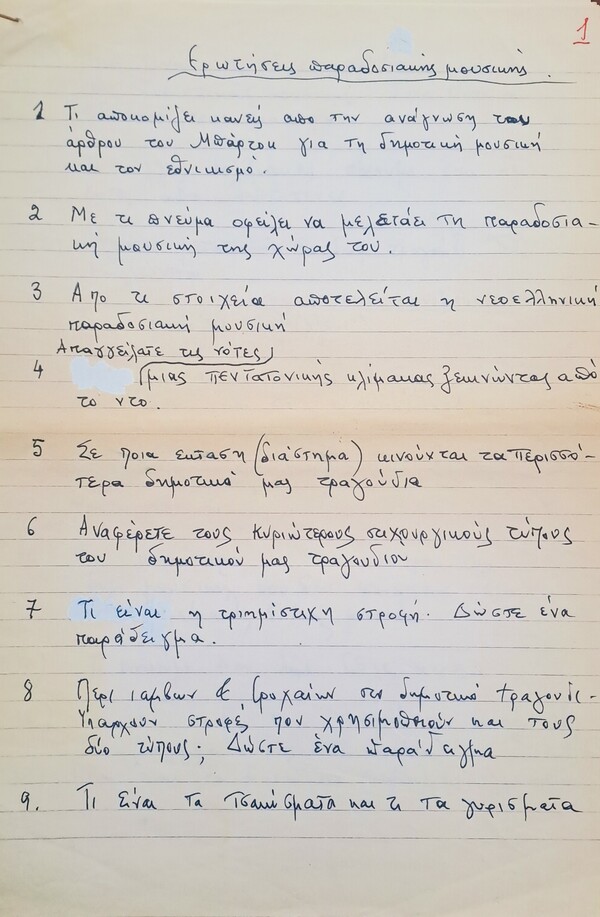 1
Ερωτήσεις παραδοσιακής μουσικής.
1 Τι αποκομίζει κανείς απο την ανάγνωση του
άρθρου του Μπάρτοκ για τη δημοτική μουσική
και τον εθνικισμό.
2 Με τι πνεύμα οφείλει να μελετάει τη παραδοσια-
κή μουσική της χώρας του.
3 Απο τι στοιχεία αποτελείται η νεοελληνική
παραδοσιακή μουσική
Απαγγείλατε τις νότες
4 μιας πεντατονικής κλίμακας ξεκινώντας από
το ντο.
5 Σε ποια εκταση (διάστημα) κινούνται τα περισσό-
τερα δημοτικά μας τραγούδια
6 Αναφέρετε τους κυριώτερους στιχουργικούς τύπους
του δημοτικού μας τραγουδιου
7 Τι είναι η τριημίστιχη στροφή. Δώστε ένα
παράδειγμα.
8 Περι ιαμβων & τροχαίων στο δημοτικό τραγούδι.
Υπαρχουν στροφές που χρησιμοποιούν και τους
δύο τύπους; Δώστε ένα παράδειγμα
9. Τι είναι τα τσακίσματα και τι τα γυρίσματα